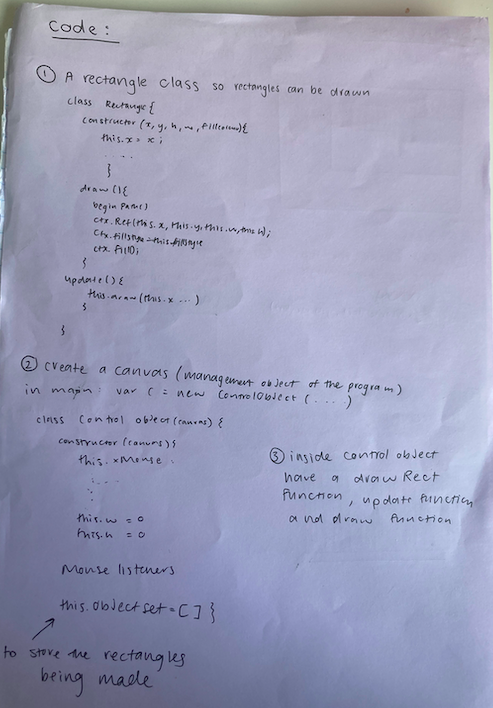 Code:
① A rectangle class so rectangles can be drawn
class Rectangle {
constructor (x, y, h, w, fillcolour){
this.x = x;
....
}
draw (){
begin Path()
ctx. Rect(this.x, this.y, this.w, this.h);
ctx.fillstyle=this.fillstyle
ctx. Fill();
}
update() {
this.draw(this.x ...)
}
}
② create a canvas (management object of the program)
in main: var C = new ControlObject (...)
class Control object (canvas) {
constructor (canvas) {
this.xMouse
....
this.w = 0
this.h = 0
Mouse listeners
this.objectset = [] }
to store the rectangles
being made
③ inside control object
have a drawRect
function, update function
and draw function